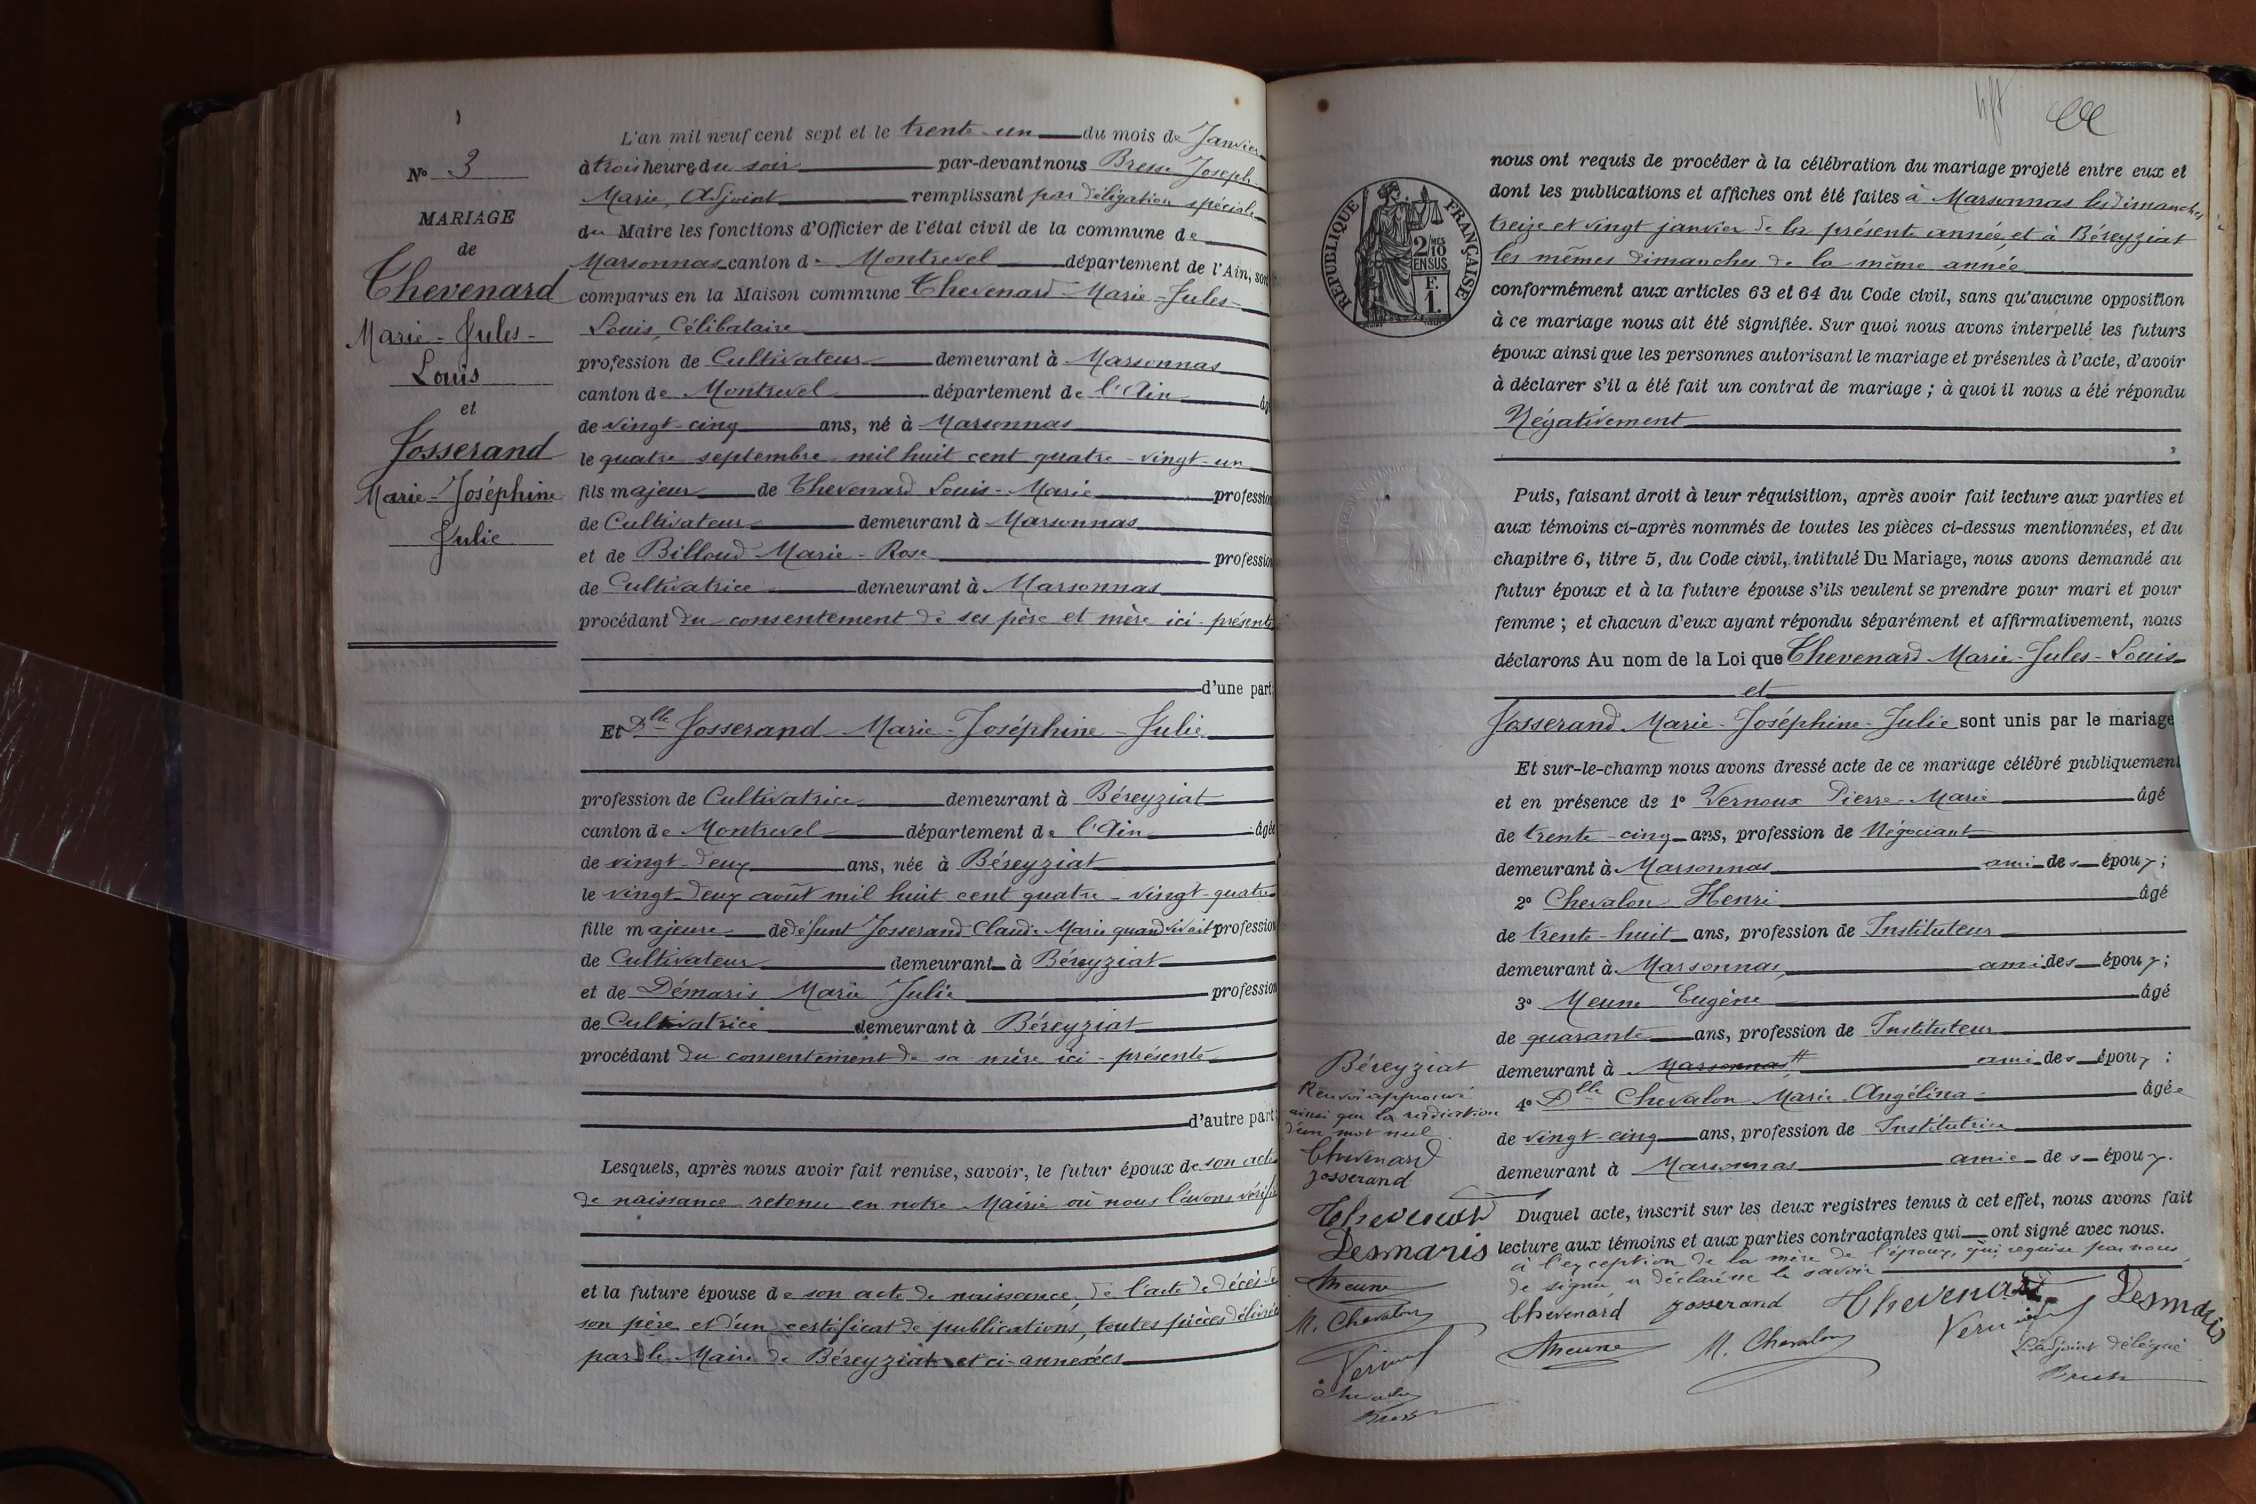 N° 3
MARIAGE
de
Thevenard
Marie - Jules -
Louis
et
Josserand
Marie - Joséphine
Julie
L'an mil neuf cent sept et le trente - un du mois de Janvier
à trois heures du soir par-devant nous Bresse Joseph
Marie, Adjoint remplissant par déligation spéciale
du Maire les fonctions d'Officier de l'état civil de la commune de
Marsonnas canton de Montrevel département de l'Ain, sont
comparus en la Maison commune Thevenard - Marie - Jules -
Louis, Célibataire
profession de Cultivateur demeurant à Marsonnas
canton de Montrevel département de l'Ain âgé
de vingt - cinq ans, né à Marsonnas
le quatre septembre mil huit cent quatre - vingt - un
fils majeur de Thevenard Louis - Marie profession
de Cultivateur demeurant à Marsonnas
et de Billoud Marie - Rose profession
de Cultivatrice demeurant à Marsonnas
procédant du consentement de ses père et mère ici - présents
d'une part.
Et Dlle Josserand Marie - Joséphine - Julie
profession de Cultivatrice demeurant à Béreyziat
canton de Montrevel département de l'Ain âgée
de vingt - deux ans, née à Béreyziat
le vingt - deux août mil huit cent quatre - vingt - quatre
fille majeure de défunt Josserand Claude Marie quand vivait profession
de Cultivateur demeurant à Béreyziat
et de Démaris Marie Julie profession
de Cultivatrice demeurant à Béreyziat
procédant du consentement de sa mère ici - présente
d'autre part;
Lesquels, après nous avoir fait remise, savoir, le futur époux de son acte
de naissance retenu en notre Mairie où nous l'avons vérifié
et la future épouse de son acte de naissance, de l'acte de décès de
son père et d'un certificat de publications, toutes pièces délivrées
par le Maire de Béreyziat et ci-annexées
REPUBLIQUE FRANÇAISE
2/10 MES
EN SUS
F.
1.
nous ont requis de procéder à la célébration du mariage projeté entre eux et
dont les publications et affiches ont été faites à Marsonnas les dimanches
treize et vingt janvier de la présente année, et à Béreyziat
les mêmes dimanches de la même année
conformément aux articles 63 et 64 du Code civil, sans qu'aucune opposition
à ce mariage nous ait été signifiée. Sur quoi nous avons interpellé les futurs
époux ainsi que les personnes autorisant le mariage et présentes à l'acte, d'avoir
à déclarer s'il a été fait un contrat de mariage ; à quoi il nous a été répondu
Négativement
Puis, faisant droit à leur réquisition, après avoir fait lecture aux parties et
aux témoins ci-après nommés de toutes les pièces ci-dessus mentionnées, et du
chapitre 6, titre 5, du Code civil, intitulé Du Mariage, nous avons demandé au
futur époux et à la future épouse s'ils veulent se prendre pour mari et pour
femme ; et chacun d'eux ayant répondu séparément et affirmativement, nous
déclarons Au nom de la Loi que Thevenard Marie - Jules - Louis
et
Josserand Marie - Joséphine - Julie sont unis par le mariage
Et sur-le-champ nous avons dressé acte de ce mariage célébré publiquement
et en présence de 1° Vernoux Pierre - Marie âgé
de trente - cinq ans, profession de Négociant
demeurant à Marsonnas ami des époux ;
2° Chevalon Henri âgé
de trente - huit ans, profession de Instituteur
demeurant à Marsonnas, ami des époux ;
3° Meune Eugène âgé
de quarante ans, profession de Instituteur
demeurant à Marsonnas # ami des époux ;
4° Dlle Chevalon Marie Angélina âgée
de vingt - cinq ans, profession de Institutrice
demeurant à Marsonnas amie des époux.
Duquel acte, inscrit sur les deux registres tenus à cet effet, nous avons fait
lecture aux témoins et aux parties contractantes qui ont signé avec nous.
à l'exception de la mère de l'époux, qui requise par nous
de signer a déclaré ne le savoir
Thevenard Josserand Thevenard Desmaris
Meune M. Chevalon
L'adjoint délégué
Bresse
Béreyziat
Renvoi approuvé
ainsi que la radiation
d'un mot nul.
Thevenard
Josserand
Thevenard
Desmaris
Meune
M. Chevalon
Chevalon
Bresse